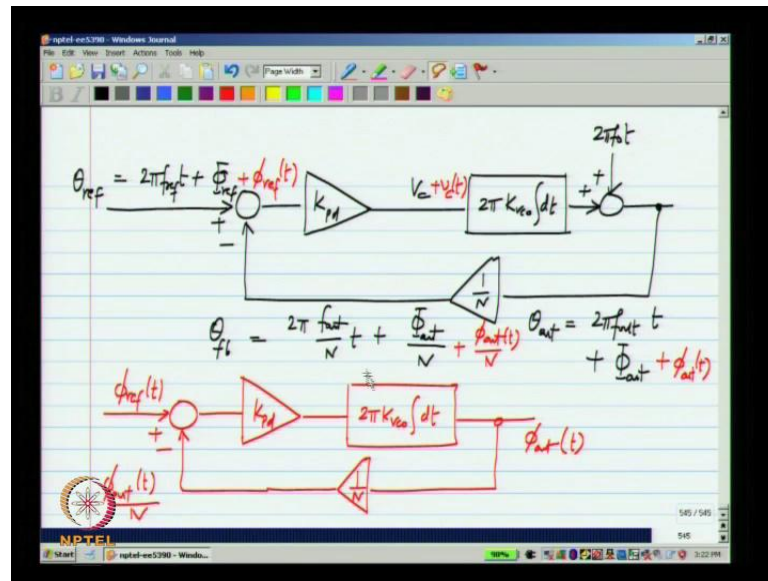 nptel-ee5390 - Windows Journal
File Edit View Insert Actions Tools Help
Page Width
B I
2πf₀t
θ_ref = 2πf_ref t + Φ_ref + ϕ_ref(t)
K_pd
V_c + v_c(t)
2π K_vco ∫dt
+ +
+
−
1/N
θ_fb = 2π f_out/N t + Φ_out/N + ϕ_out(t)/N
θ_out = 2πf_out t
+ Φ_out + ϕ_out(t)
ϕ_ref(t)
+
−
K_pd
2π K_vco ∫dt
ϕ_out(t)
ϕ_out(t)/N
1/N
NPTEL
545 / 545
545
Start
nptel-ee5390 - Windo...
90%
3:22 PM